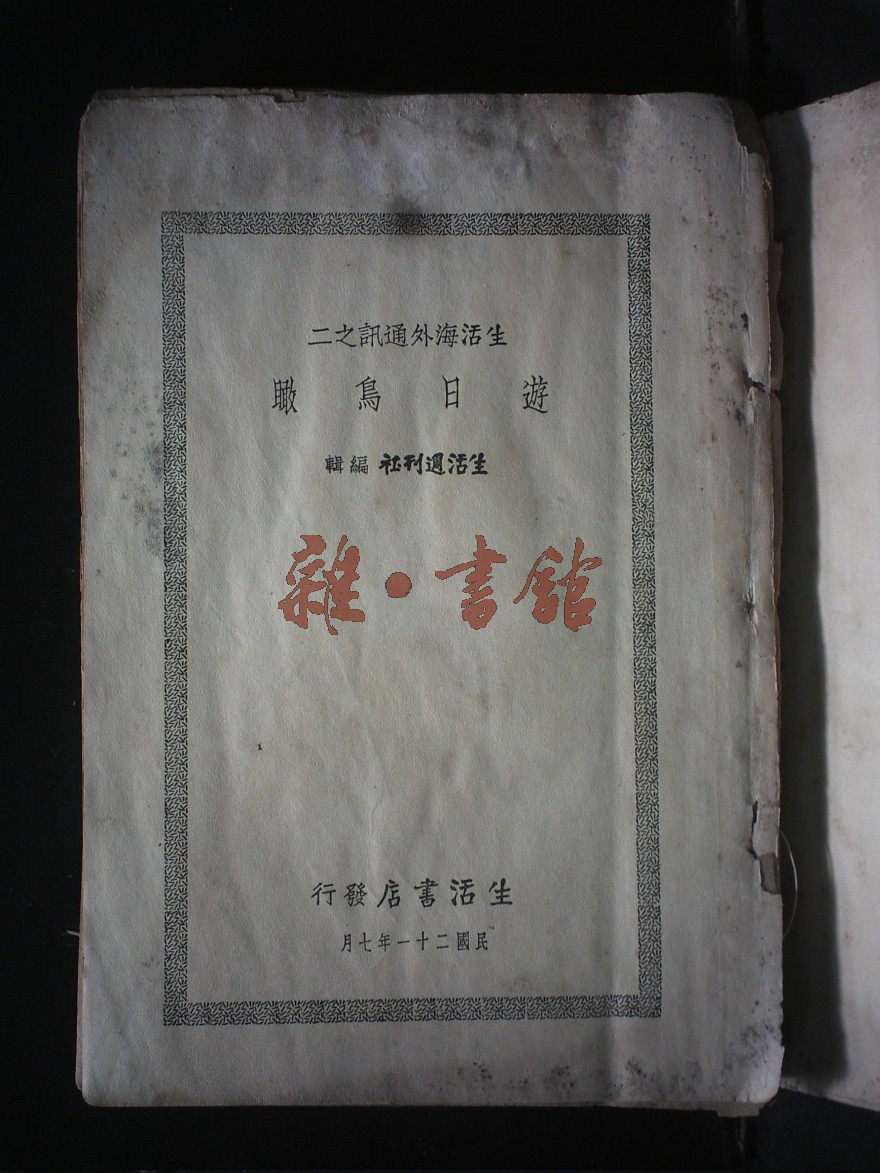 生活海外通訊之二
遊日鳥瞰
生活週刊社編輯
雜·書館
生活書店發行
民國二十一年七月